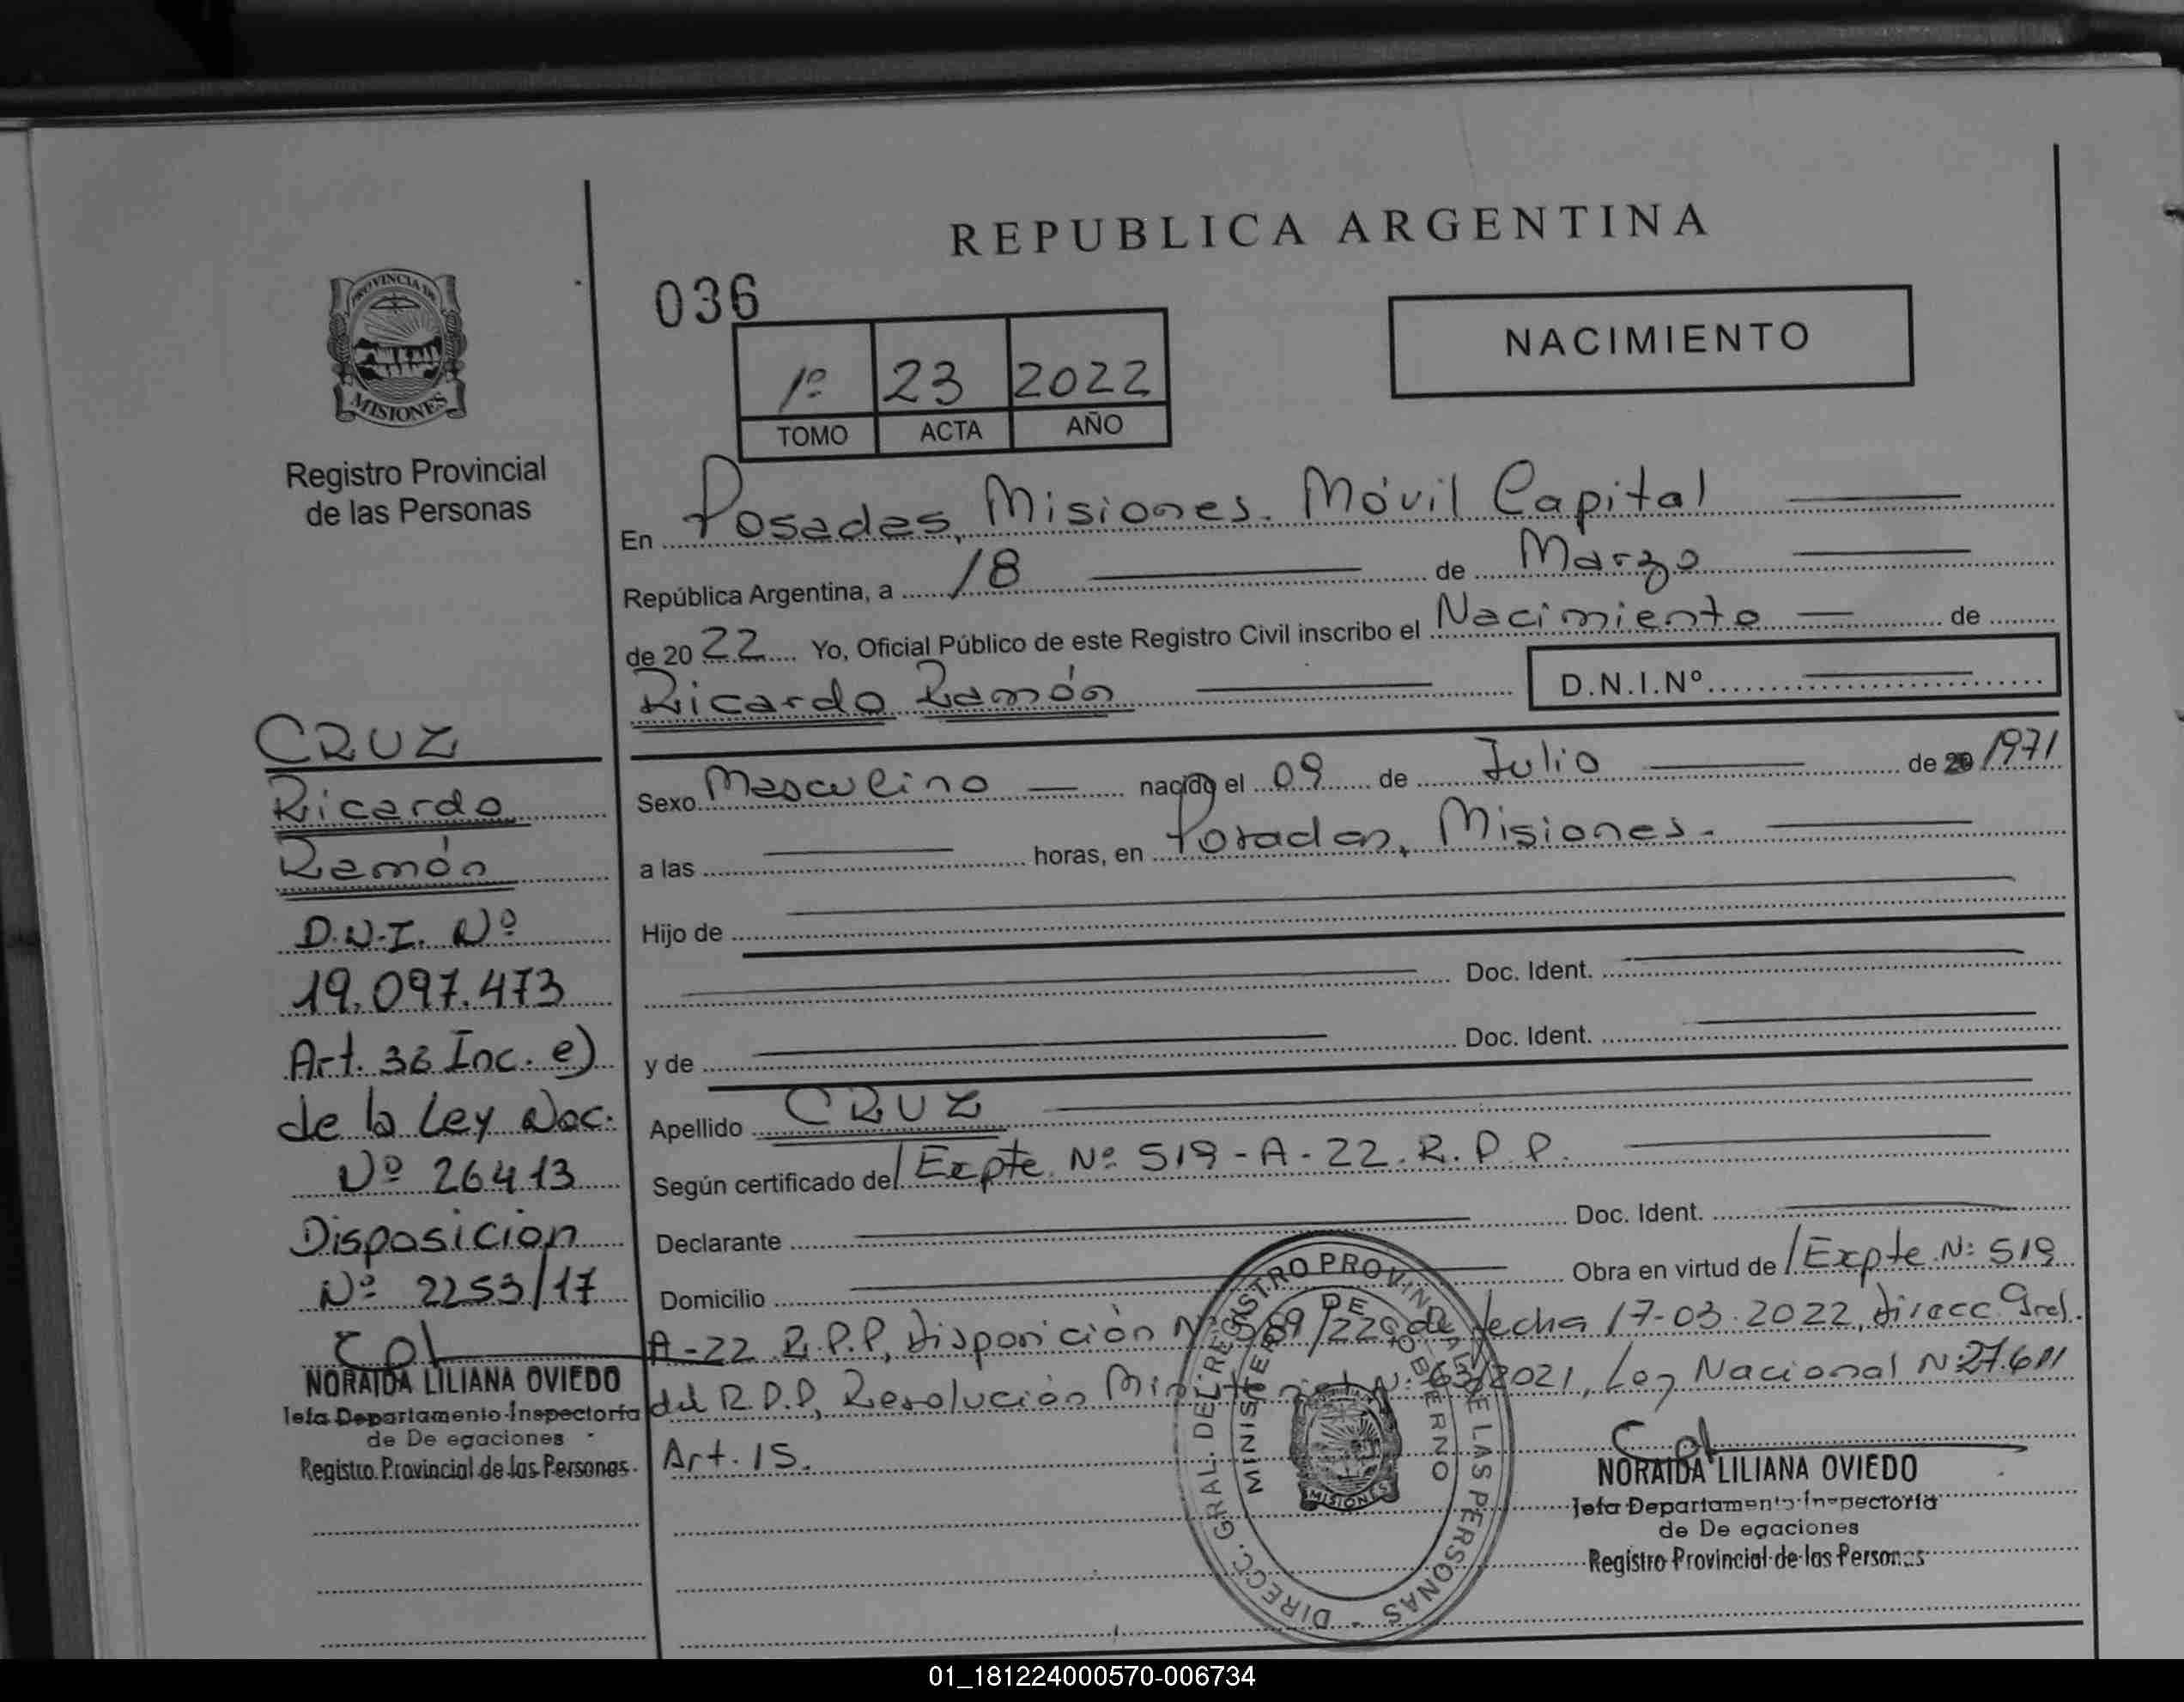 REPUBLICA ARGENTINA
036
1º 23 2022
TOMO ACTA AÑO
NACIMIENTO
PROVINCIA DE
MISIONES
Registro Provincial
de las Personas
En Posadas, Misiones. Móvil Capital
República Argentina, a 18 de Marzo
de 20 22 Yo, Oficial Público de este Registro Civil inscribo el Nacimiento de
Ricardo Ramón D.N.I.Nº
Sexo Masculino nacido el 09 de Julio de 20 1971
a las horas, en Posadas, Misiones.
Hijo de
Doc. Ident.
y de Doc. Ident.
Apellido CRUZ
Según certificado de/ Expte. Nº 519-A-22. R.P.P.
Declarante Doc. Ident.
Domicilio Obra en virtud de /Expte. Nº 519
A-22 R.P.P, Disposición Nº /22 de fecha 17-03-2022, direcc Gral.
del R.P.P, Resolución Nº 63/2021, Ley Nacional Nº 27.611
Art. 15.
CRUZ
Ricardo
Ramón
D.N.I. Nº
19.097.473
Art. 36 Inc. e)
de la Ley Nac.
Nº 26413
Disposicion
Nº 2253/17
NORAIDA LILIANA OVIEDO
Jefa Departamento Inspectoría
de De egaciones
Registro Provincial de las Personas
DIRECC. GRAL. DEL REGISTRO PROVINCIAL DE LAS PERSONAS -
MINISTERIO DE GOBIERNO
MISIONES
NORAIDA LILIANA OVIEDO
Jefa Departamento Inspectoría
de De egaciones
Registro Provincial de las Personas
01_181224000570-006734